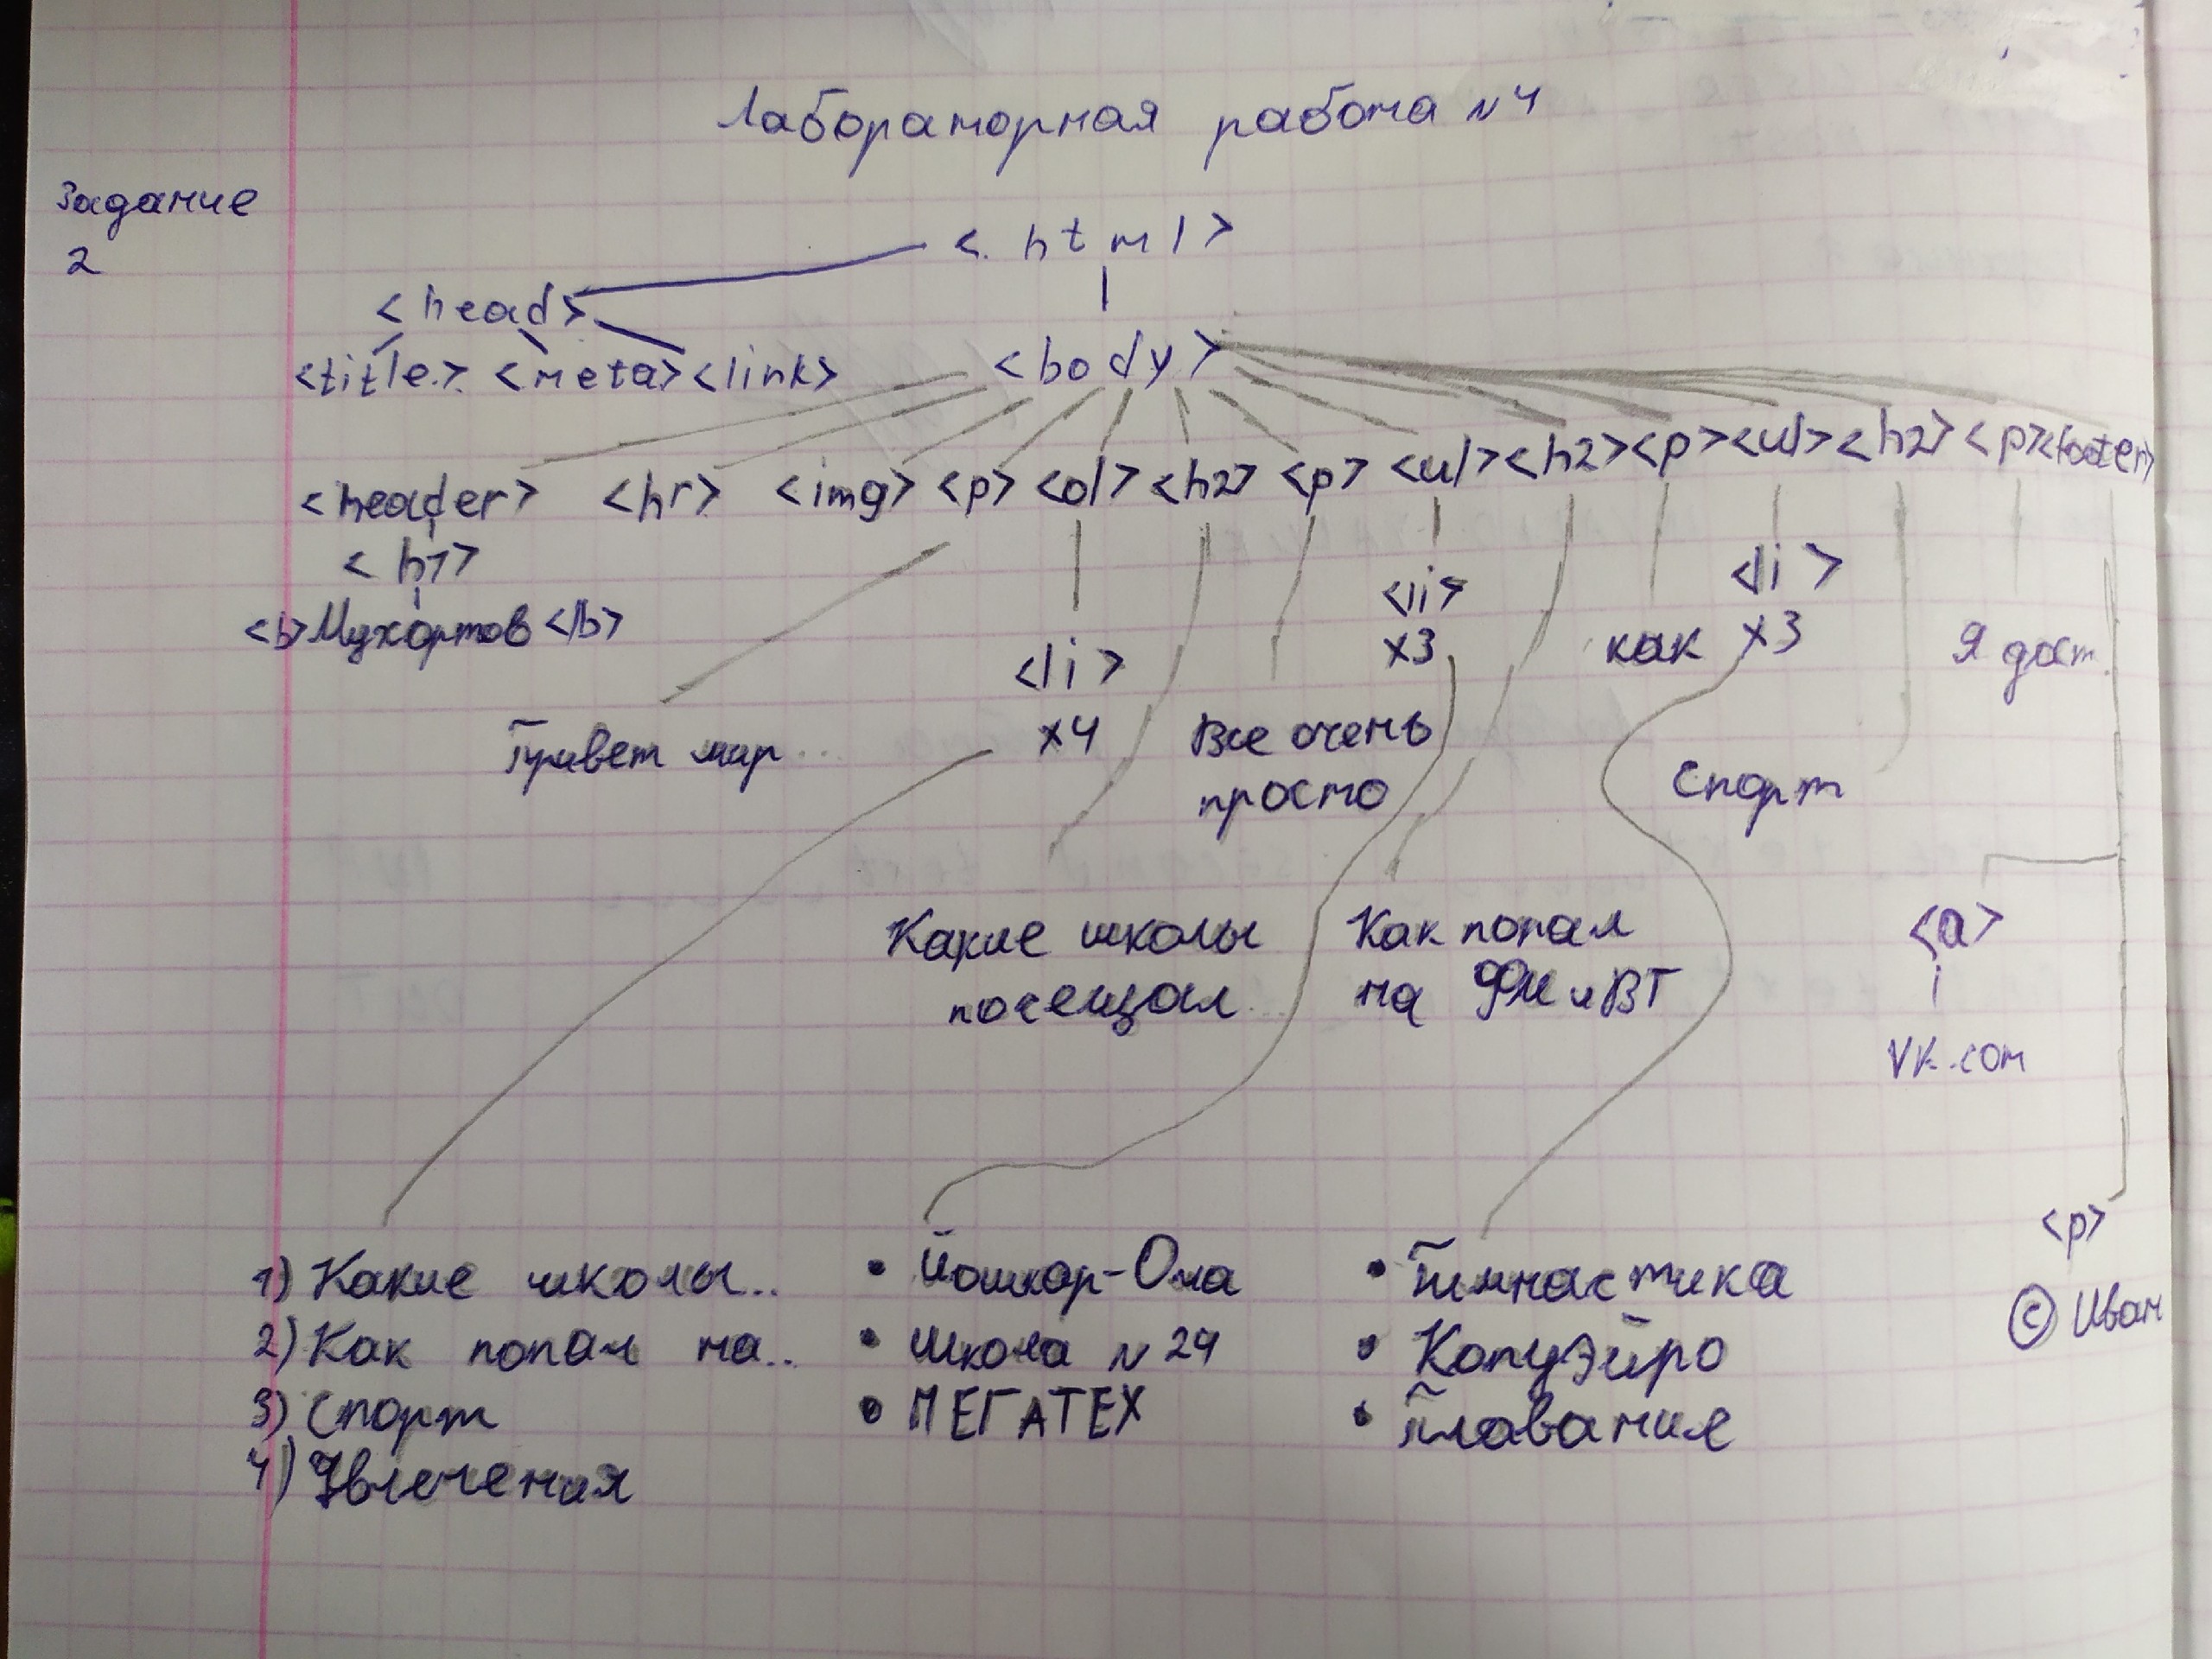 Лабораторная работа N4
Задание
2
<html>
<head>
<title> <meta> <link>
<body>
<header> <hr> <img> <p> <ol> <h2> <p> <ul> <h2> <p> <ul> <h2> <p> <footer>
<h1>
<b>Мухортов</b>
<li>
x3
<li>
x3
как
Я дост.
<li>
x4
Привет мир...
Все очень
просто
Спорт
Какие школы
посещал...
Как попал
на ФМ и ВТ
<a>
VK.com
<p>
© Иван
1) Какие школы..
2) Как попал на..
3) Спорт
4) Увлечения
• Йошкар-Ола
• Школа N 29
• МЕГАТЕХ
• Гимнастика
• Копуэйро
• Плавание